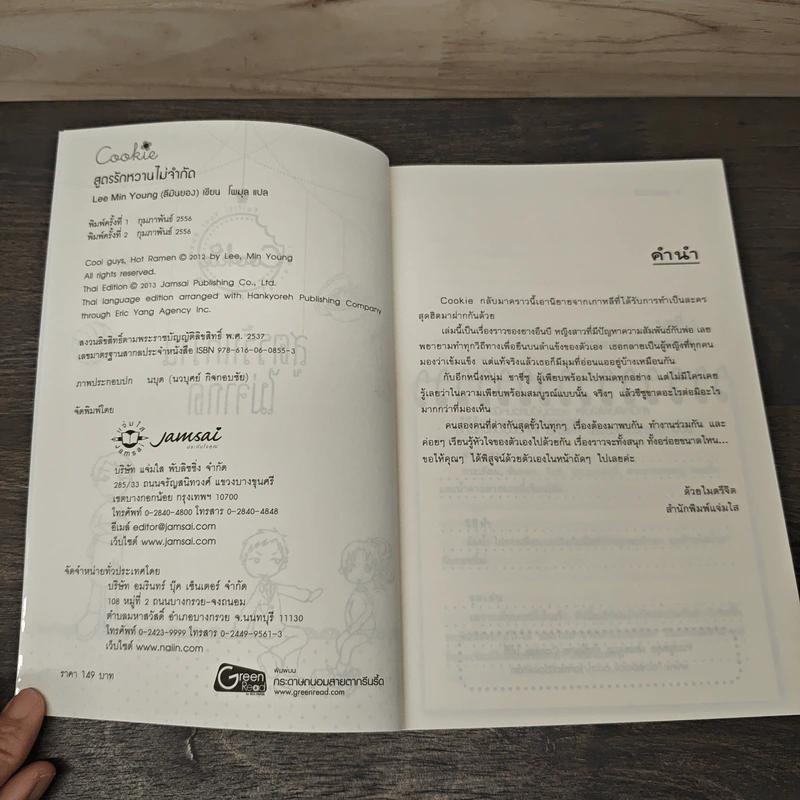 Cookie
สูตรรักหวานไม่จำกัด
Lee Min Young (ลีมินยอง) เขียน โพมุล แปล
พิมพ์ครั้งที่ 1 กุมภาพันธ์ 2556
พิมพ์ครั้งที่ 2 กุมภาพันธ์ 2556
Cool guys, Hot Ramen © 2012 by Lee, Min Young
All rights reserved.
Thai Edition © 2013 Jamsai Publishing Co., Ltd.
Thai language edition arranged with Hankyoreh Publishing Company
through Eric Yang Agency Inc.
สงวนลิขสิทธิ์ตามพระราชบัญญัติลิขสิทธิ์ พ.ศ. 2537
เลขมาตรฐานสากลประจำหนังสือ ISBN 978-616-06-0855-3
ภาพประกอบปก นบุด (นวบุศย์ กิจกอบชัย)
จัดพิมพ์โดย
แจ่มใส
Jamsai
jamsai
บริษัท แจ่มใส พับลิชชิ่ง จำกัด
285/33 ถนนจรัญสนิทวงศ์ แขวงบางขุนศรี
เขตบางกอกน้อย กรุงเทพฯ 10700
โทรศัพท์ 0-2840-4800 โทรสาร 0-2840-4848
อีเมล์ editor@jamsai.com
เว็บไซต์ www.jamsai.com
จัดจำหน่ายทั่วประเทศโดย
บริษัท อมรินทร์ บุ๊ค เซ็นเตอร์ จำกัด
108 หมู่ที่ 2 ถนนบางกรวย-จงถนอม
ตำบลมหาสวัสดิ์ อำเภอบางกรวย จ.นนทบุรี 11130
โทรศัพท์ 0-2423-9999 โทรสาร 0-2449-9561-3
เว็บไซต์ www.naiin.com
ราคา 149 บาท
Green Read
พิมพ์บน
กระดาษถนอมสายตากรีนรี้ด
www.greenread.com
คำนำ
Cookie กลับมาคราวนี้เอานิยายจากเกาหลีที่ได้รับการทำเป็นละคร
สุดฮิตมาฝากกันด้วย
เล่มนี้เป็นเรื่องราวของยางอึนบี หญิงสาวที่มีปัญหาความสัมพันธ์กับพ่อ เลย
พยายามทำทุกวิถีทางเพื่อยืนบนลำแข้งของตัวเอง เธอกลายเป็นผู้หญิงที่ทุกคน
มองว่าเข้มแข็ง แต่แท้จริงแล้วเธอก็มีมุมที่อ่อนแออยู่บ้างเหมือนกัน
กับอีกหนึ่งหนุ่ม ชาชีซู ผู้เพียบพร้อมไปหมดทุกอย่าง แต่ไม่มีใครเคย
รู้เลยว่าในความเพียบพร้อมสมบูรณ์แบบนั้น จริงๆ แล้วชีซูขาดอะไรต่อมิอะไร
มากกว่าที่มองเห็น
คนสองคนที่ต่างกันสุดขั้วในทุกๆ เรื่องต้องมาพบกัน ทำงานร่วมกัน และ
ค่อยๆ เรียนรู้หัวใจของตัวเองไปด้วยกัน เรื่องราวจะทั้งสนุก ทั้งอร่อยขนาดไหน...
ขอให้คุณๆ ได้พิสูจน์ด้วยตัวเองในหน้าถัดๆ ไปเลยค่ะ
ด้วยไมตรีจิต
สำนักพิมพ์แจ่มใส